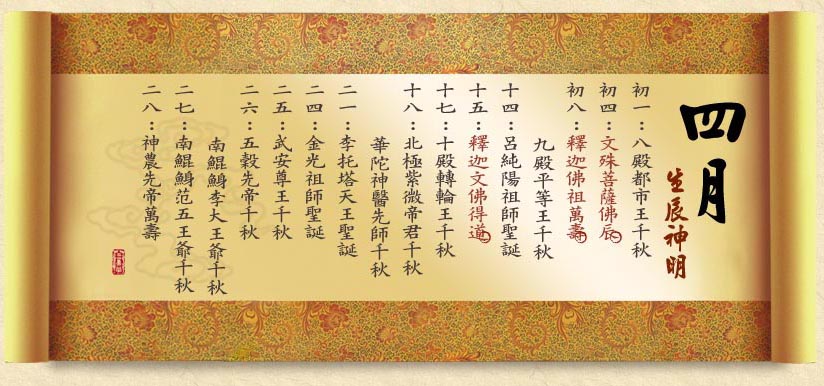 四月
生辰神明
初一：八殿都市王千秋
初四：文殊菩薩佛辰
初八：釋迦佛祖萬壽
九殿平等王千秋
十四：呂純陽祖師聖誕
十五：釋迦文佛得道
十七：十殿轉輪王千秋
十八：北極紫微帝君千秋
華陀神醫先師千秋
二一：李托塔天王聖誕
二四：金光祖師聖誕
二五：武安尊王千秋
二六：五穀先帝千秋
南鯤鯓李大王爺千秋
二七：南鯤鯓范五王爺千秋
二八：神農先帝萬壽